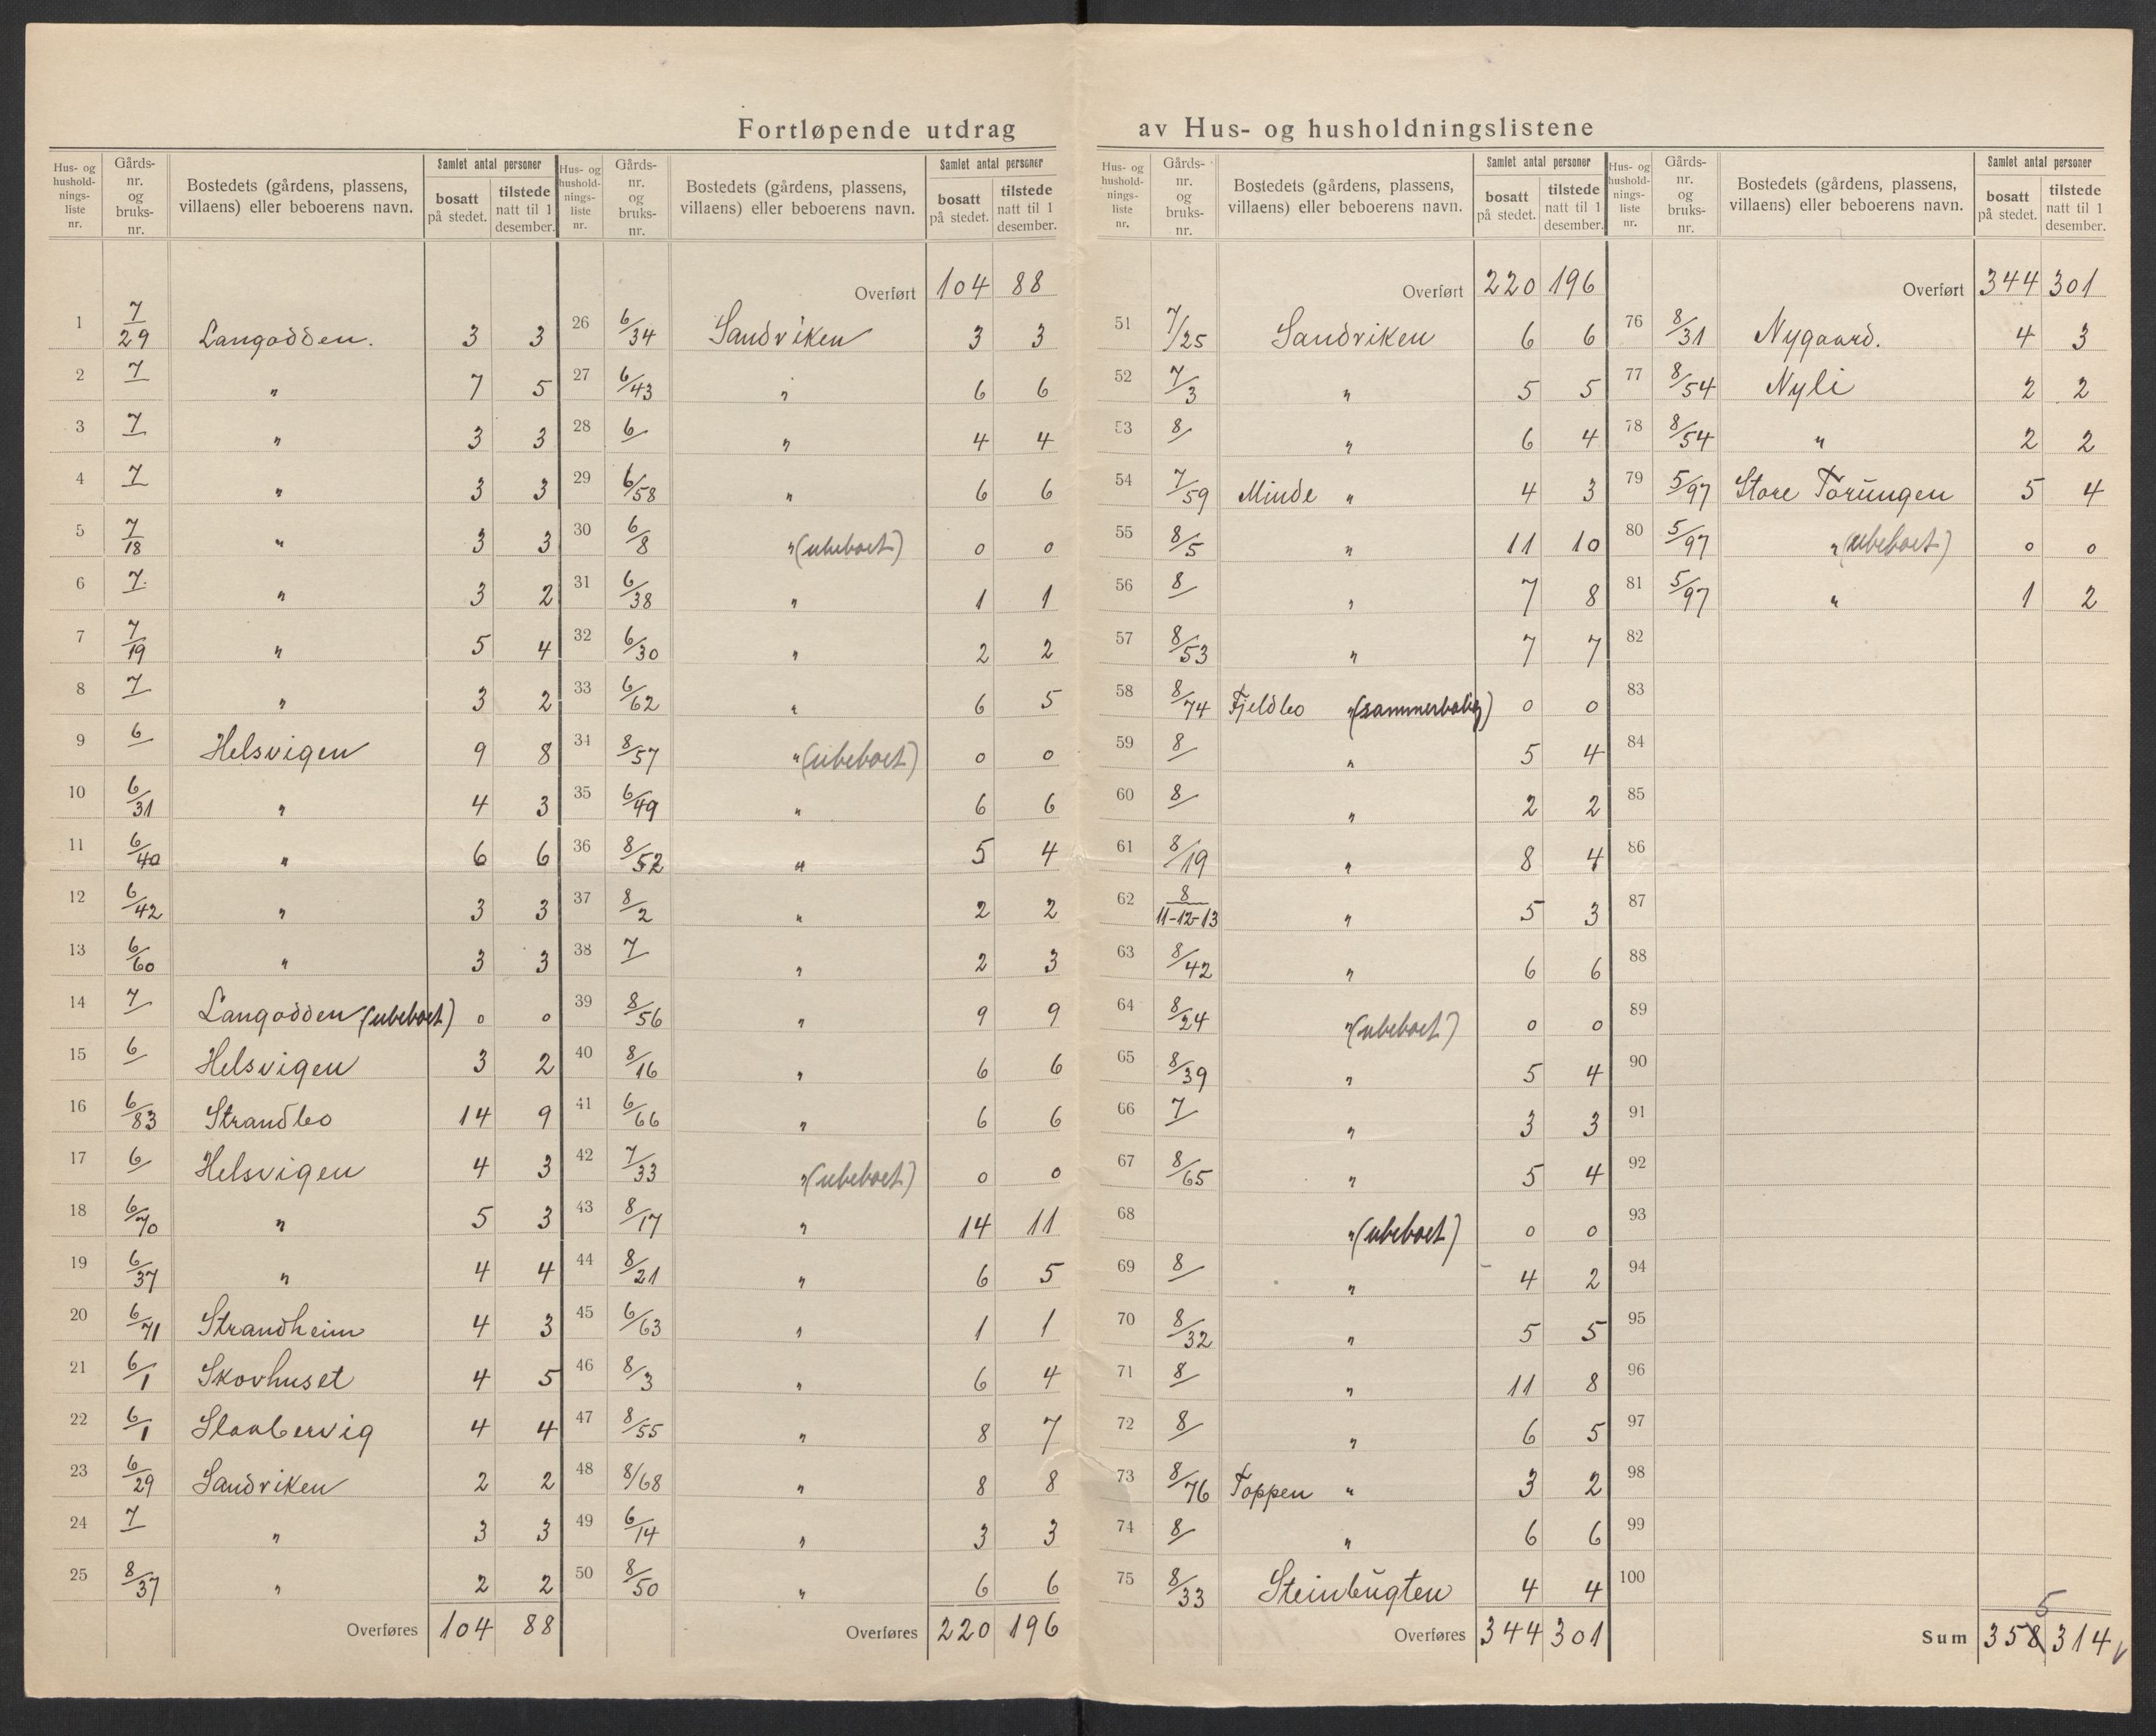 Fortløpende utdrag av Hus- og husholdningslistene
Hus- og hushold- nings- liste nr. | Gårds- nr. og bruks- nr. | Bostedets (gårdens, plassens, villaens) eller beboerens navn. | Samlet antal personer | bosatt på stedet. | tilstede natt til 1 desember.
1 7/29 Langodden. 3 3
2 7 " 7 5
3 7 " 3 3
4 7 " 3 3
5 7/18 " 3 3
6 7 " 3 2
7 7/19 " 5 4
8 7 " 3 2
9 6 Helsvigen 9 8
10 6/31 " 4 3
11 6/40 " 6 6
12 6/42 " 3 3
13 6/60 " 3 3
14 7 Langodden (ubeboet) 0 0
15 6 Helsvigen 3 2
16 6/83 Strandbo 14 9
17 6 Helsvigen 4 3
18 6/70 " 5 3
19 6/37 " 4 4
20 6/71 Strandheim 4 3
21 6/1 Skovhuset 4 5
22 6/1 4 4
23 6/29 Sandviken 2 2
24 7 " 3 3
25 8/37 " 2 2
Overføres 104 88
Hus- og hushold- nings- liste nr. | Gårds- nr. og bruks- nr. | Bostedets (gårdens, plassens, villaens) eller beboerens navn. | Samlet antal personer | bosatt på stedet. | tilstede natt til 1 desember.
Overført 104 88
26 6/34 Sandviken 3 3
27 6/43 " 6 6
28 6 " 4 4
29 6/58 " 6 6
30 6/8 " (ubeboet) 0 0
31 6/38 " 1 1
32 6/30 " 2 2
33 6/62 " 6 5
34 8/57 " (ubeboet) 0 0
35 6/49 " 6 6
36 8/52 " 5 4
37 8/2 " 2 2
38 7 " 2 3
39 8/56 " 9 9
40 8/16 " 6 6
41 6/66 " 6 6
42 7/33 " (ubeboet) 0 0
43 8/17 " 14 11
44 8/21 " 6 5
45 6/63 " 1 1
46 8/3 " 6 4
47 8/55 " 8 7
48 8/68 " 8 8
49 6/14 " 3 3
50 8/50 " 6 6
Overføres 220 196
Hus- og hushold- nings- liste nr. | Gårds- nr. og bruks- nr. | Bostedets (gårdens, plassens, villaens) eller beboerens navn. | Samlet antal personer | bosatt på stedet. | tilstede natt til 1 desember.
Overført 220 196
51 7/25 Sandviken 6 6
52 7/3 " 5 5
53 8 " 6 4
54 7/59 Minde " 4 3
55 8/5 " 11 10
56 8 " 7 8
57 8/53 " 7 7
58 8/74 Fjeldbo " (sommerbolig) 0 0
59 8 " 5 4
60 8 " 2 2
61 8/19 " 8 4
62 8/11-12-13 " 5 3
63 8/42 " 6 6
64 8/24 " (ubeboet) 0 0
65 8/39 " 5 4
66 7 " 3 3
67 8/65 " 5 4
68 " (ubeboet) 0 0
69 8 " 4 2
70 8/32 " 5 5
71 8 " 11 8
72 8 " 6 5
73 8/76 Toppen " 3 2
74 8 " 6 6
75 8/33 Steinbugten 4 4
Overføres 344 301
Hus- og hushold- nings- liste nr. | Gårds- nr. og bruks- nr. | Bostedets (gårdens, plassens, villaens) eller beboerens navn. | Samlet antal personer | bosatt på stedet. | tilstede natt til 1 desember.
Overført 344 301
76 8/31 Nygaard. 4 3
77 8/54 Nyli 2 2
78 8/54 " 2 2
79 5/97 Store Torungen 5 4
80 5/97 " (ubeboet) 0 0
81 5/97 " 1 2
82
83
84
85
86
87
88
89
90
91
92
93
94
95
96
97
98
99
100
5
Sum 358 314 ✓